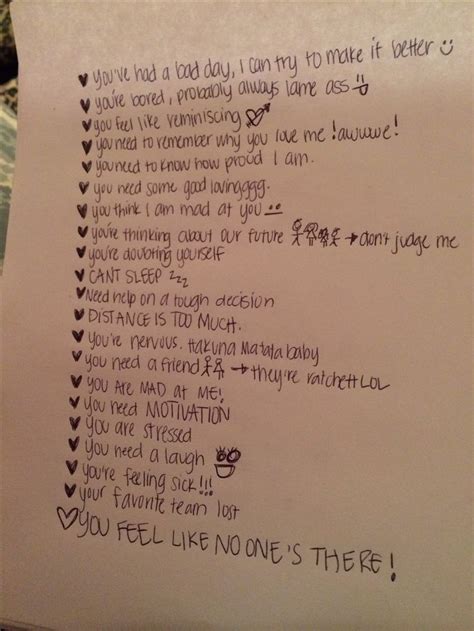 You've had a bad day, I can try to make it better
you're bored, probably always lame ass
you feel like reminiscing
you need to remember why you love me !awwwe!
you need to know how proud I am.
you need some good lovingggg.
you think I am mad at you
you're thinking about our future → don't judge me
you're doubting yourself
CANT SLEEP zzz
Need help on a tough decision
DISTANCE IS TOO MUCH.
you're nervous. Hakuna Matata baby
you need a friend → they're ratchett LOL
you ARE MAD at ME!
you need MOTIVATION
you are stressed
you need a laugh
you're feeling sick!!!
your favorite team lost
YOU FEEL LIKE NO ONE'S THERE!